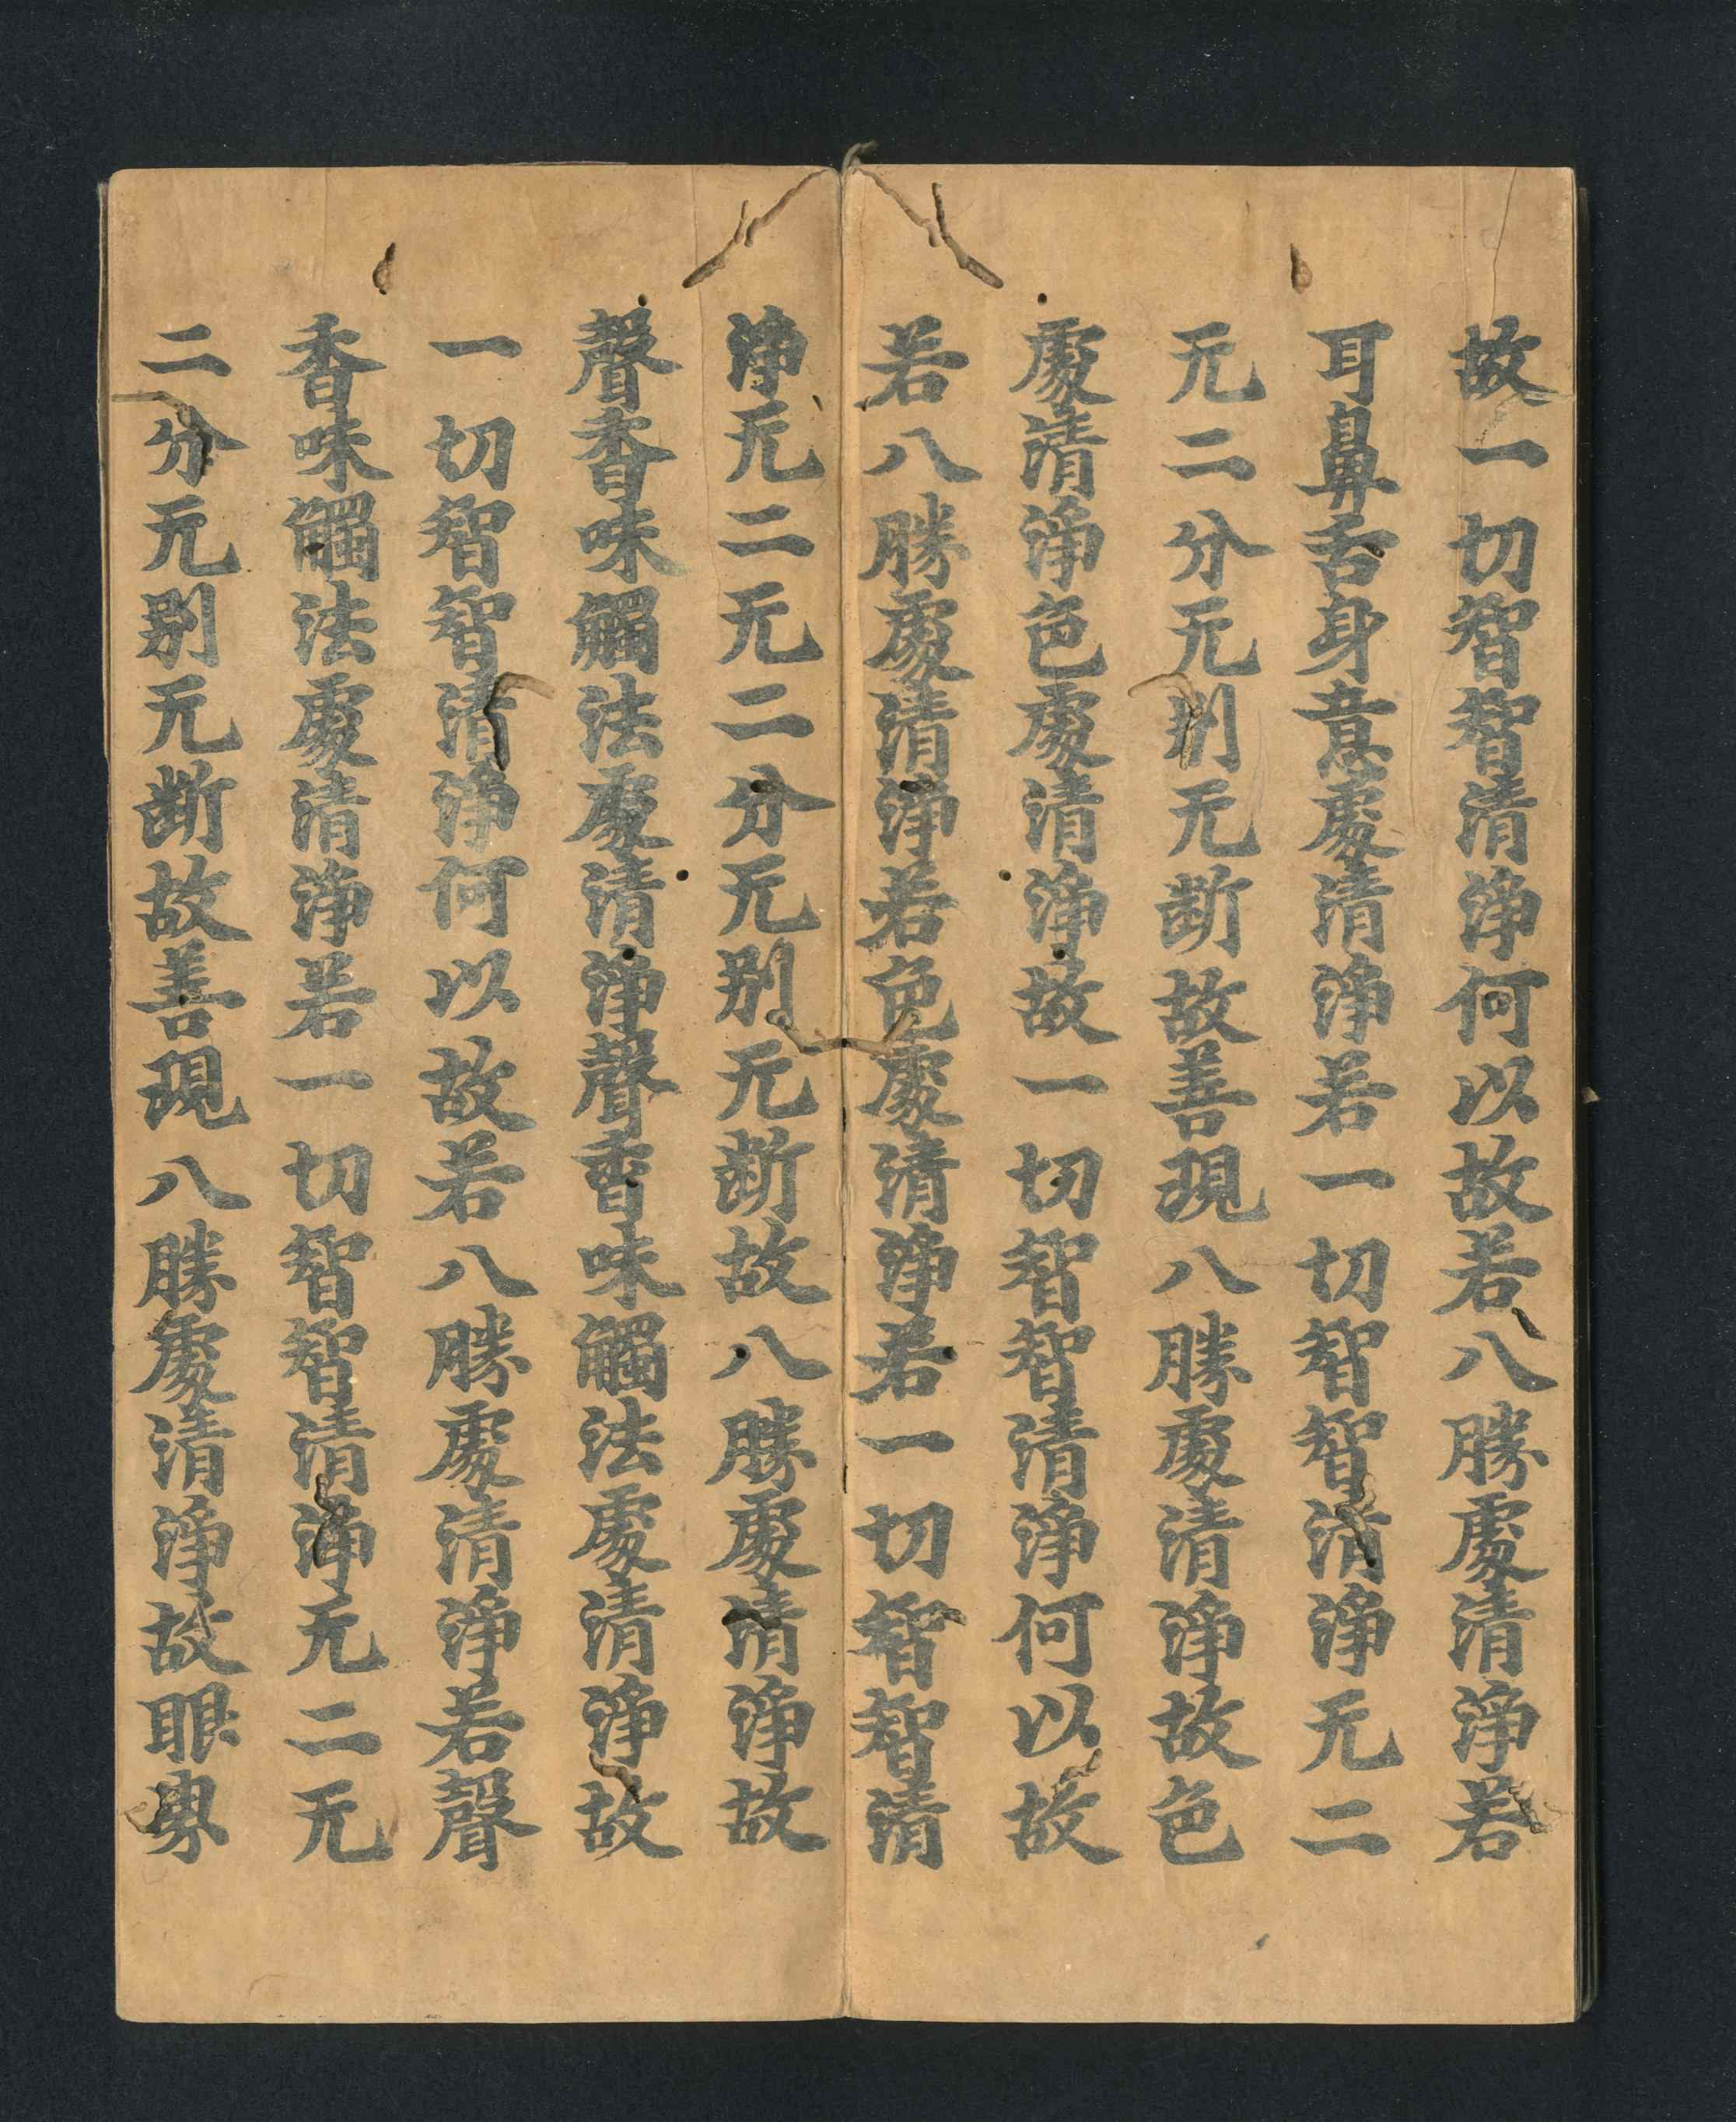 故一切智智清淨何以故若八勝處清淨若
耳鼻舌身意處清淨若一切智智清淨无二
无二分无別无断故善現八勝處清淨故色
處清淨色處清淨故一切智智清淨何以故
若八勝處清淨若色處清淨若一切智智清
淨无二无二分无別无断故八勝處清淨故
聲香味觸法處清淨聲香味觸法處清淨故
一切智智清淨何以故若八勝處清淨若聲
香味觸法處清淨若一切智智清淨无二无
二分无別无断故善現八勝處清淨故眼界